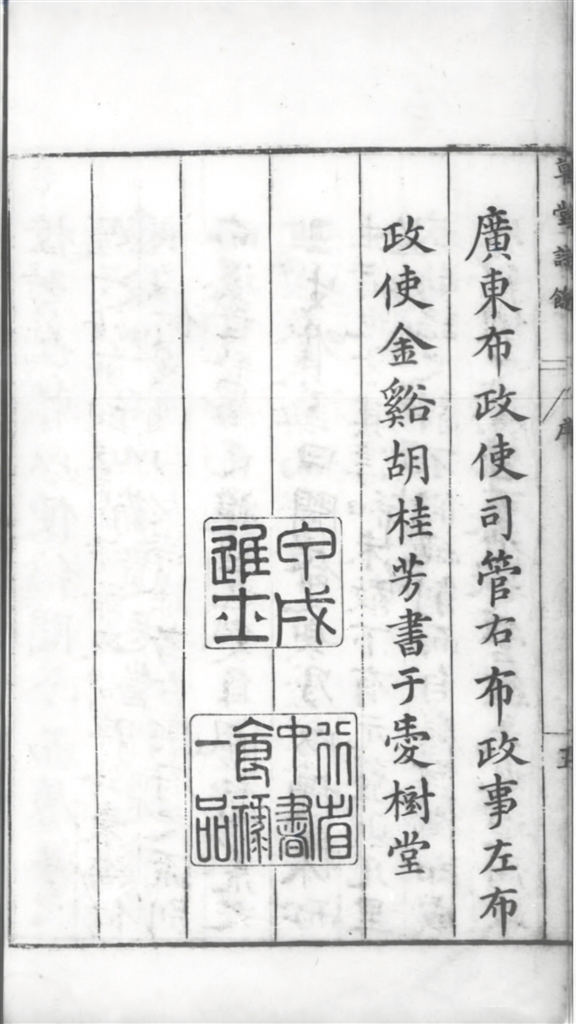 草堂詩餘
序
廣東布政使司管右布政事左布
政使金谿胡桂芳書于愛樹堂
甲戌進士
行省中書食祿一品